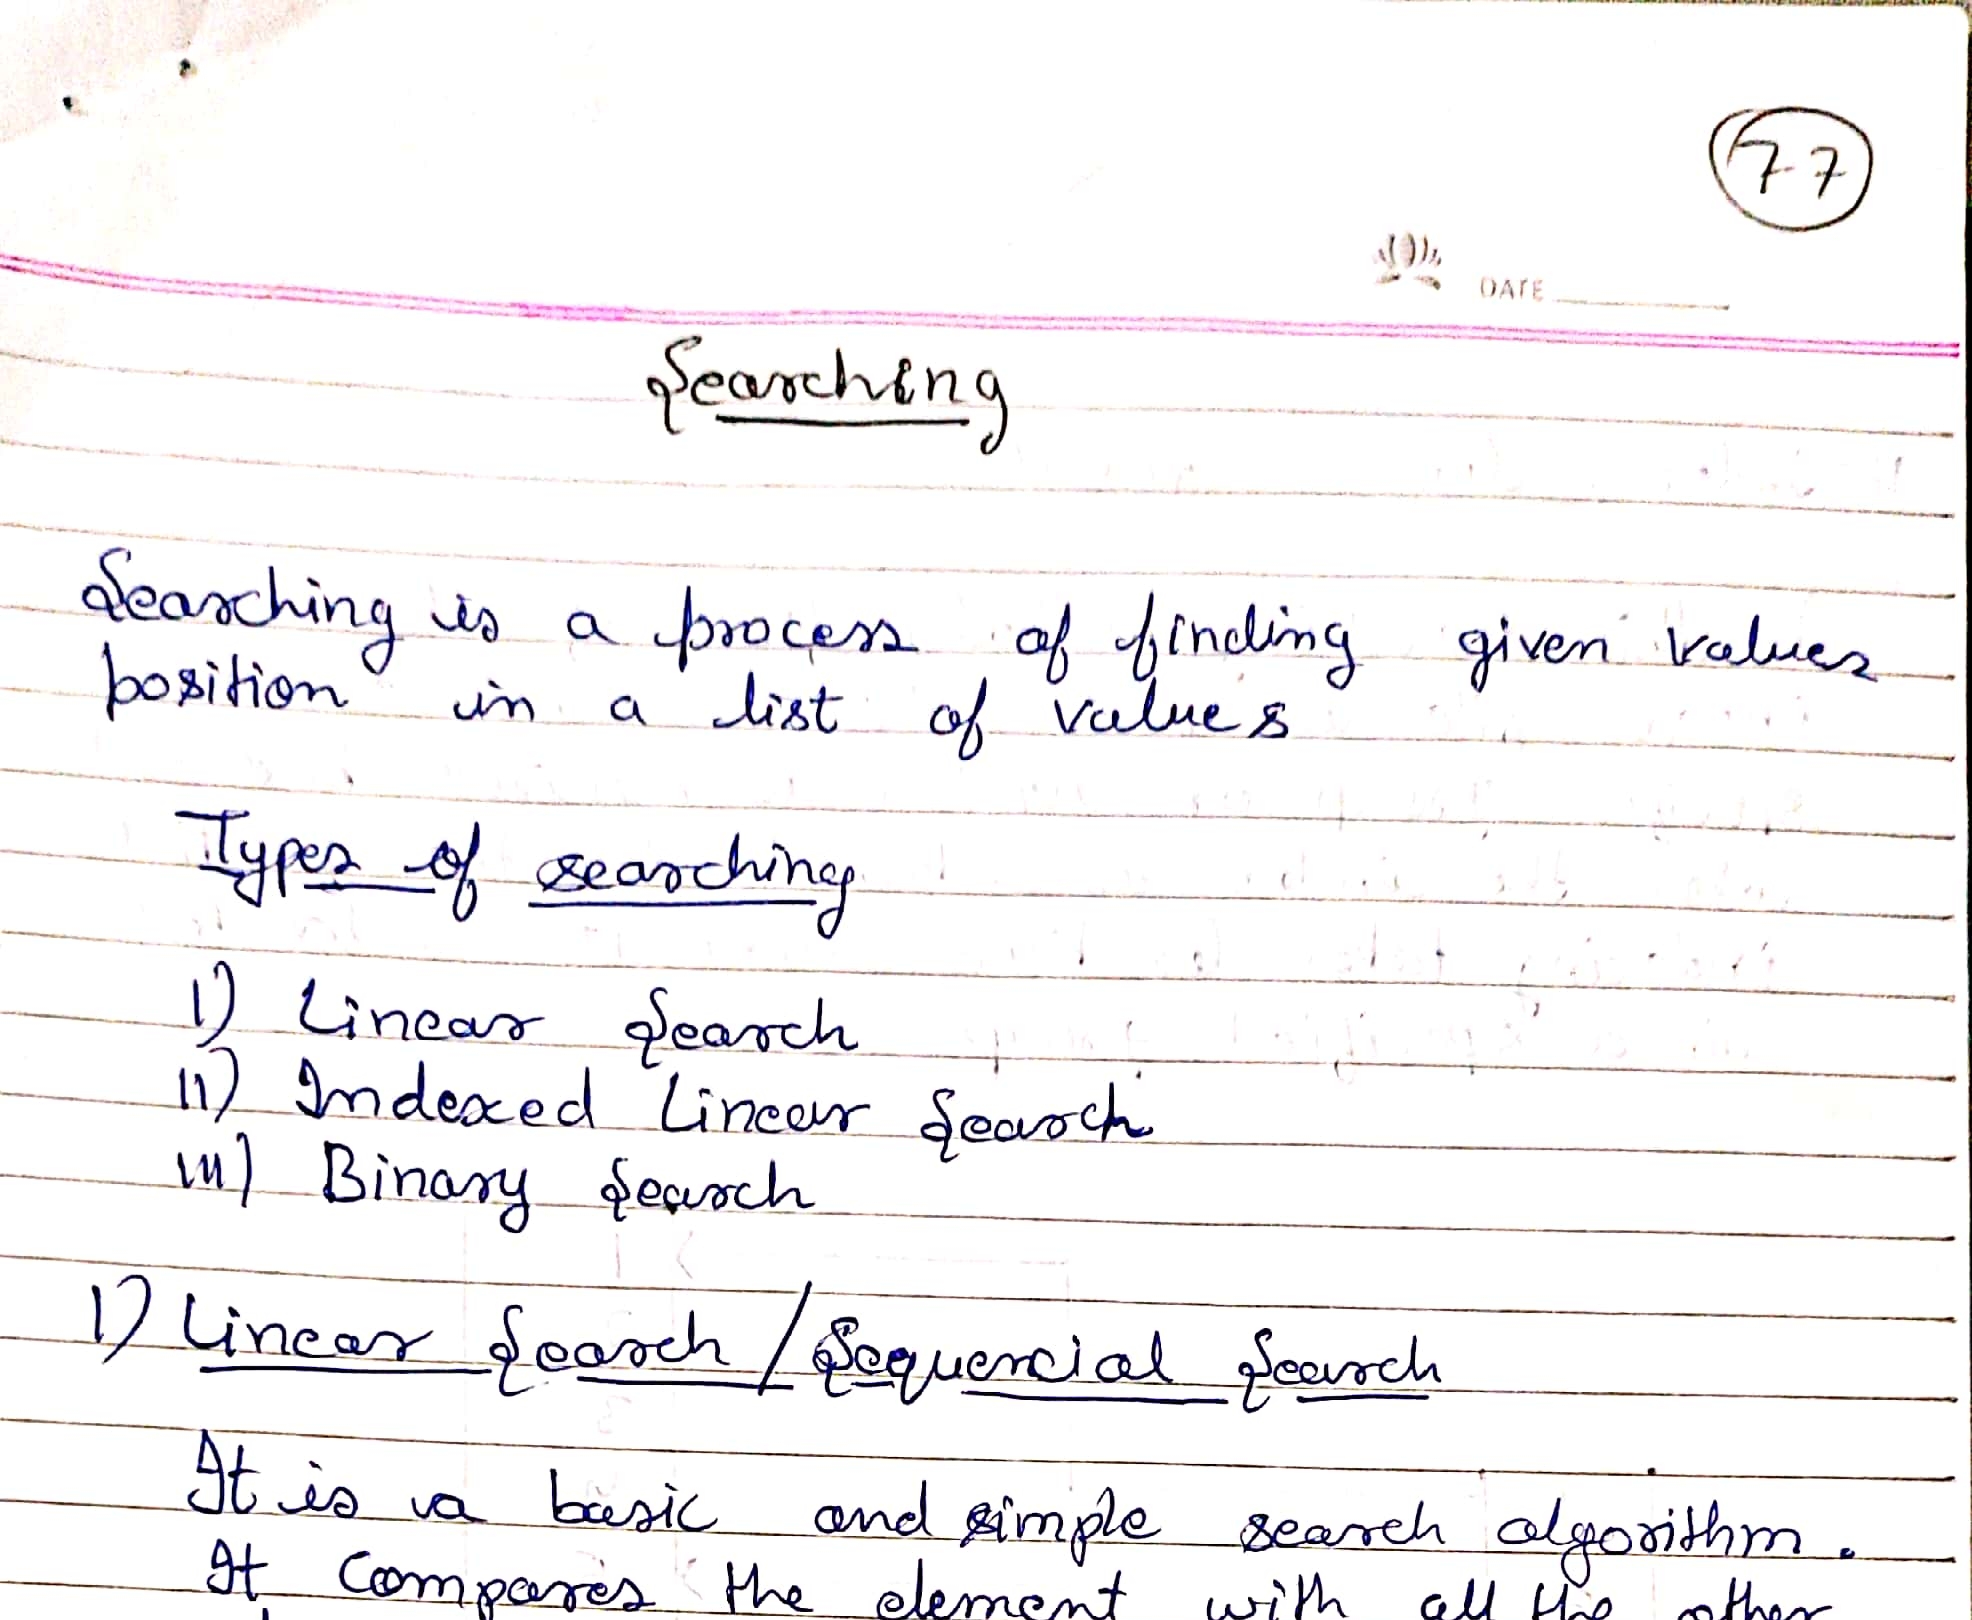 77
DATE
Searching
Searching is a process of finding given values
position in a list of values
Types of searching
I) Linear Search
II) Indexed Linear Search
III) Binary Search
1) Linear Search / Sequencial Search
It is a basic and simple search algorithm.
It compares the element with all the other